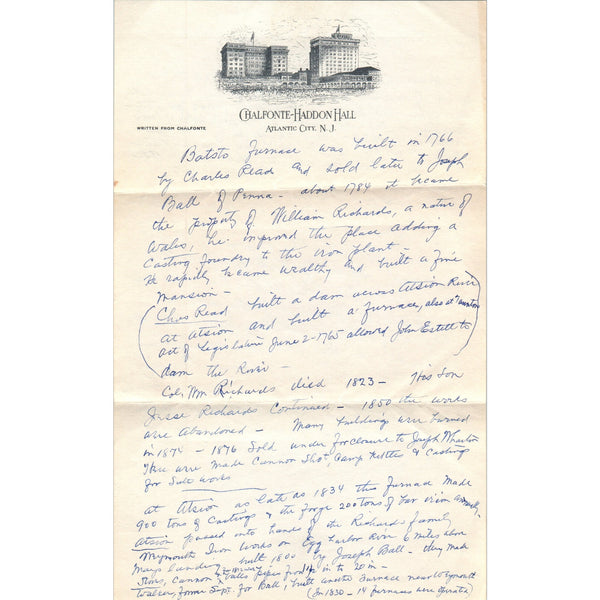 CHALFONTE-HADDON HALL
WRITTEN FROM CHALFONTE
ATLANTIC CITY, N. J.
Batsto Furnace was built in 1766
by Charles Read and sold later to Joseph
Ball of Penna - about 1784 it became
the property of William Richards, a native of
Wales, he improved the place adding a
Casting foundry to the iron plant -
He rapidly became wealthy and built a fine
mansion -
(Chas Read built a dam across Atsion River
at Atsion and built a furnace, also at
Act of Legislature June 2-1765 allowed John Estell to
dam the River -
Col. Wm Richards died 1823 - His Son
Jesse Richards Continued - 1850 the works
were Abandoned - Many buildings were burned
in 1874 - 1876 Sold under forclosure to Joseph Wharton
Here were made Cannon Shot, Camp Kettles & Castings
for Salt works
at Atsion as late as 1834 the furnace made
900 tons of Castings & the forge 200 tons of bar iron
Atsion passed into hands of the Richards family
Weymouth Iron Works on Egg Harbor River 6 miles above
Mays Landing built 1800 by Joseph Ball - they made
Stoves, Cannon & Water pipes from in to 20 in -
Walker, former Supt. for Ball, built another Furnace near Weymouth
(In 1830 - 14 furnaces were operated)